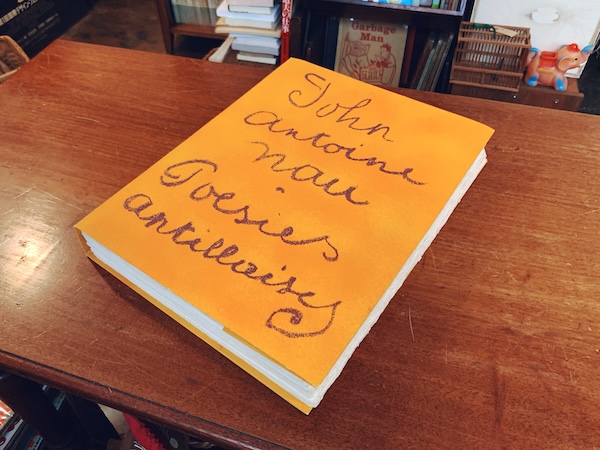 John
antoine
nau
Poesies
antillaises
Garbage
Man